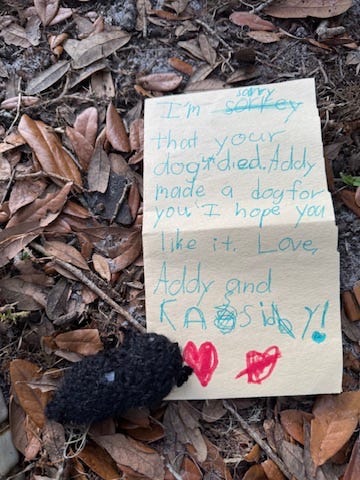 sorry
I'm sorrey
that your
dog died. Addy
made a dog for
you I hope you
like it. Love,
Addy and
KASSidy!